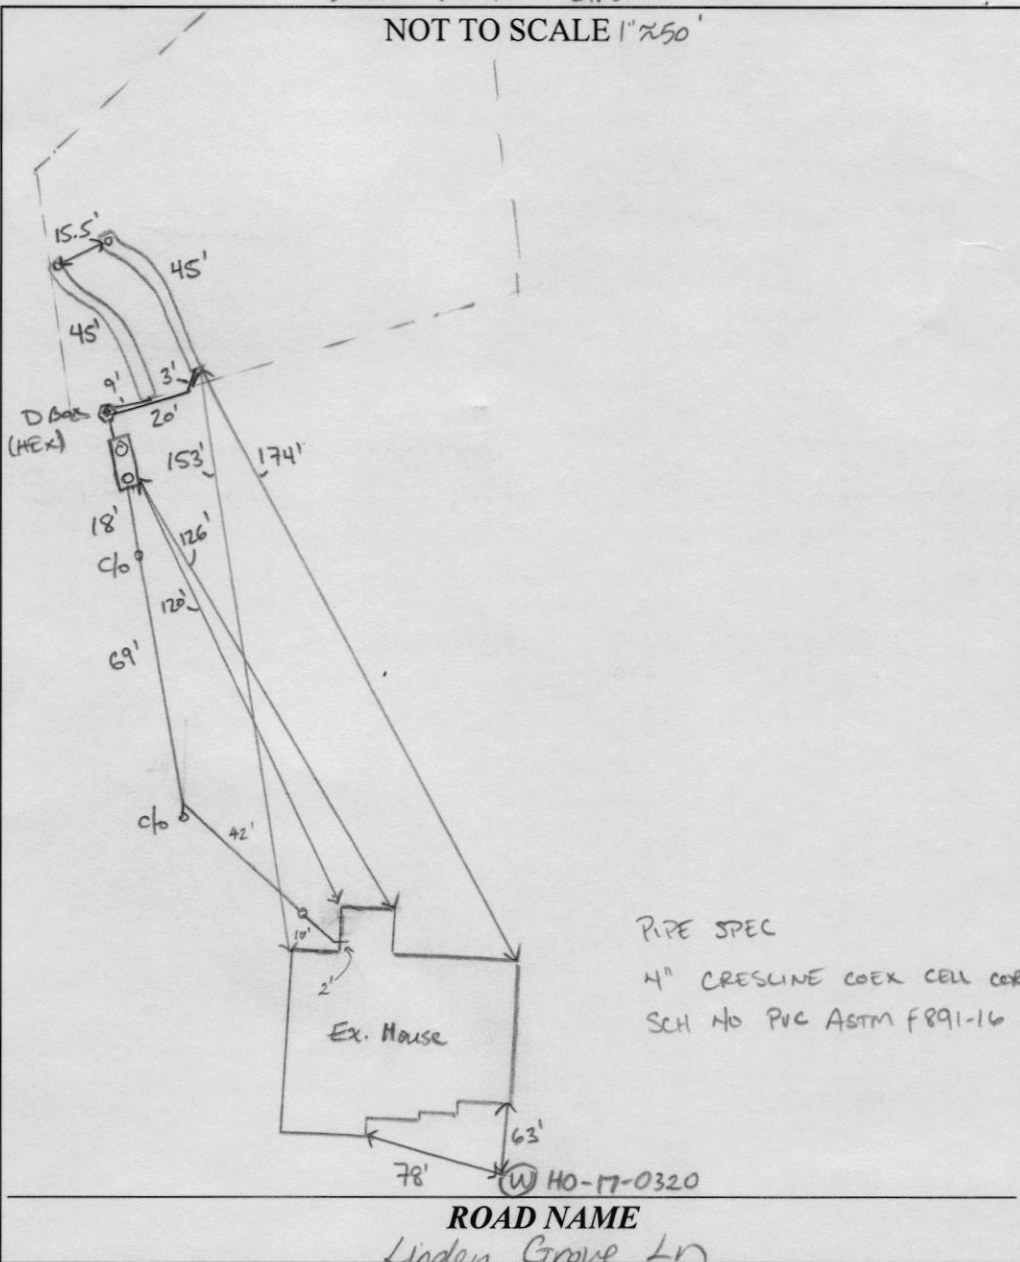 NOT TO SCALE 1"≈50'
15.5'
45'
45'
3'
9'
20'
D Box
(HEX)
153'
174'
18'
126'
C/o
120'
69'
C/o
42'
10'
2'
Ex. House
PIPE SPEC
4" CRESLINE COEX CELL COR
SCH 40 PVC ASTM F891-16
63'
78'
W HO-17-0320
ROAD NAME
Linden Grove Ln